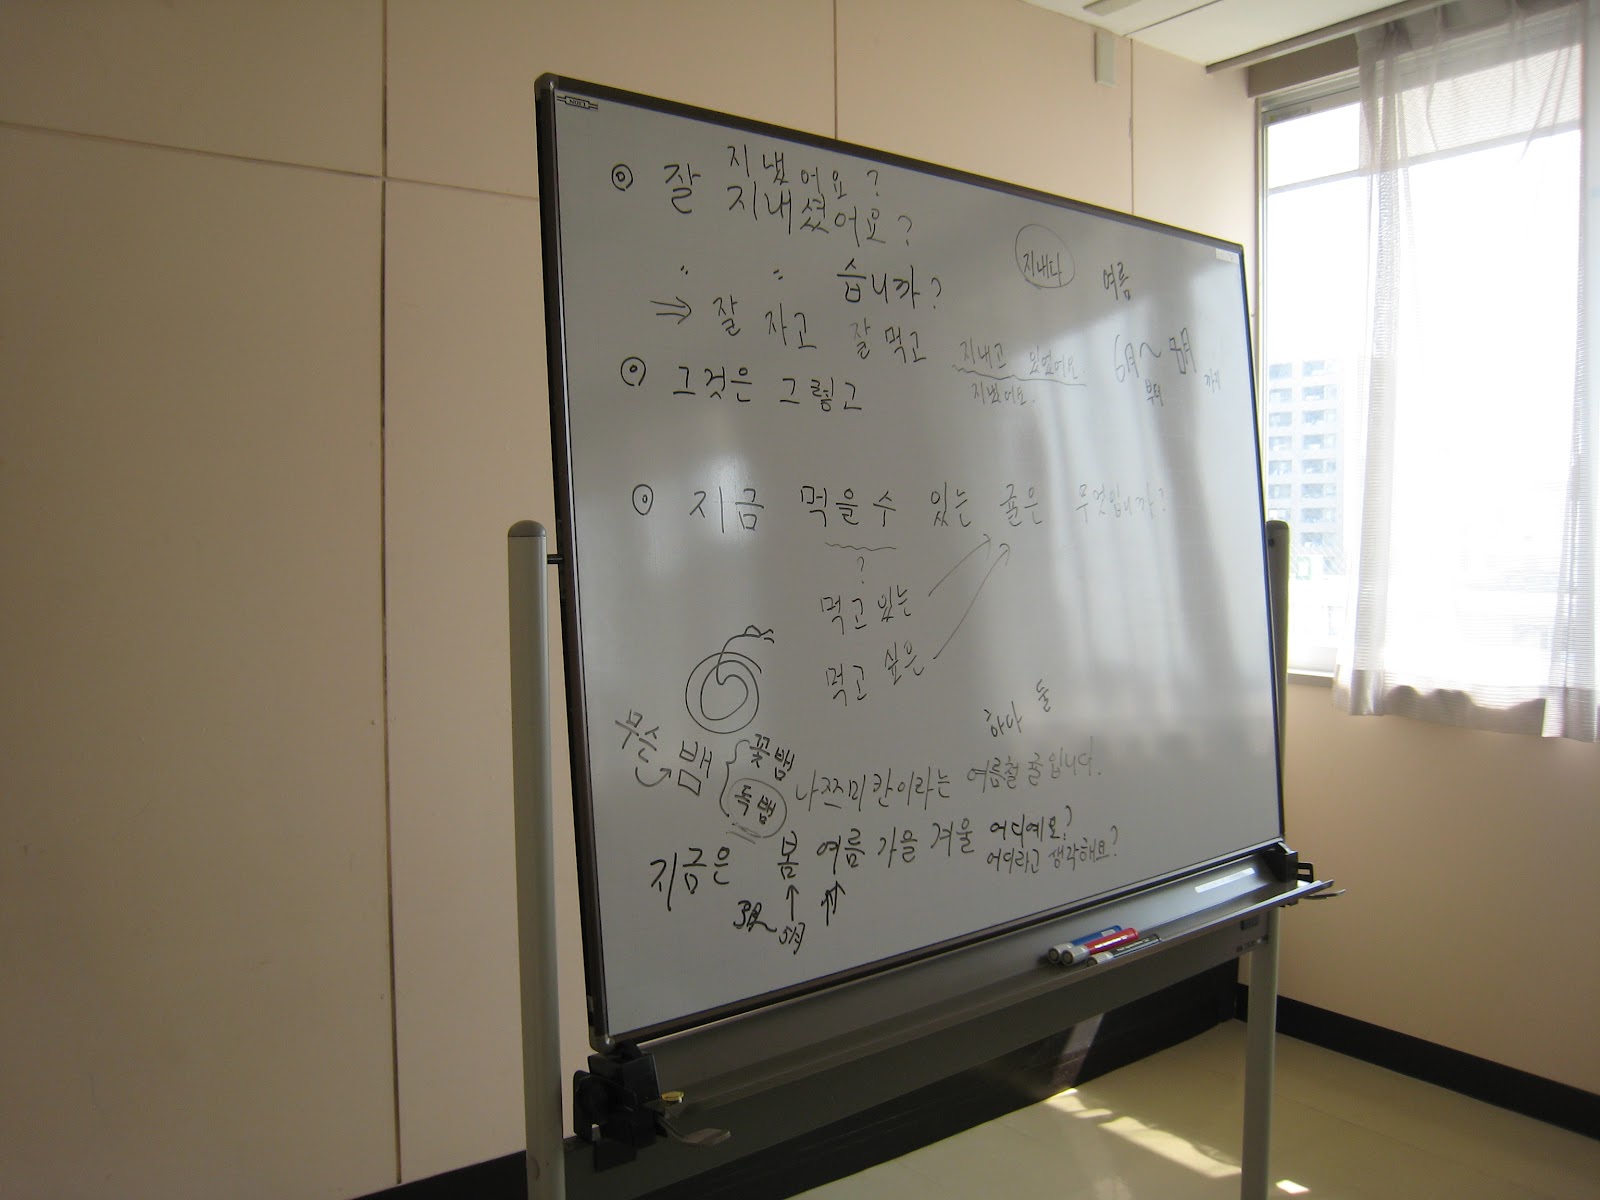 지냈어요?
◎ 잘 지내셨어요?
〃 〃 습니까?
지내다
여름
⇒ 잘 자고 잘 먹고
지내고 있었어요.
지냈어요.
6月~8月
부터 까지
◎ 그것은 그렇고
◎ 지금 먹을 수 있는 귤은 무엇입니까?
?
먹고 있는
먹고 싶은
하나 둘
무슨 뱀
꽃뱀
독뱀
나쯔미칸이라는 여름철 귤입니다.
지금은 봄 여름 가을 겨울 어디예요?
어디라고 생각해요?
3月~5月